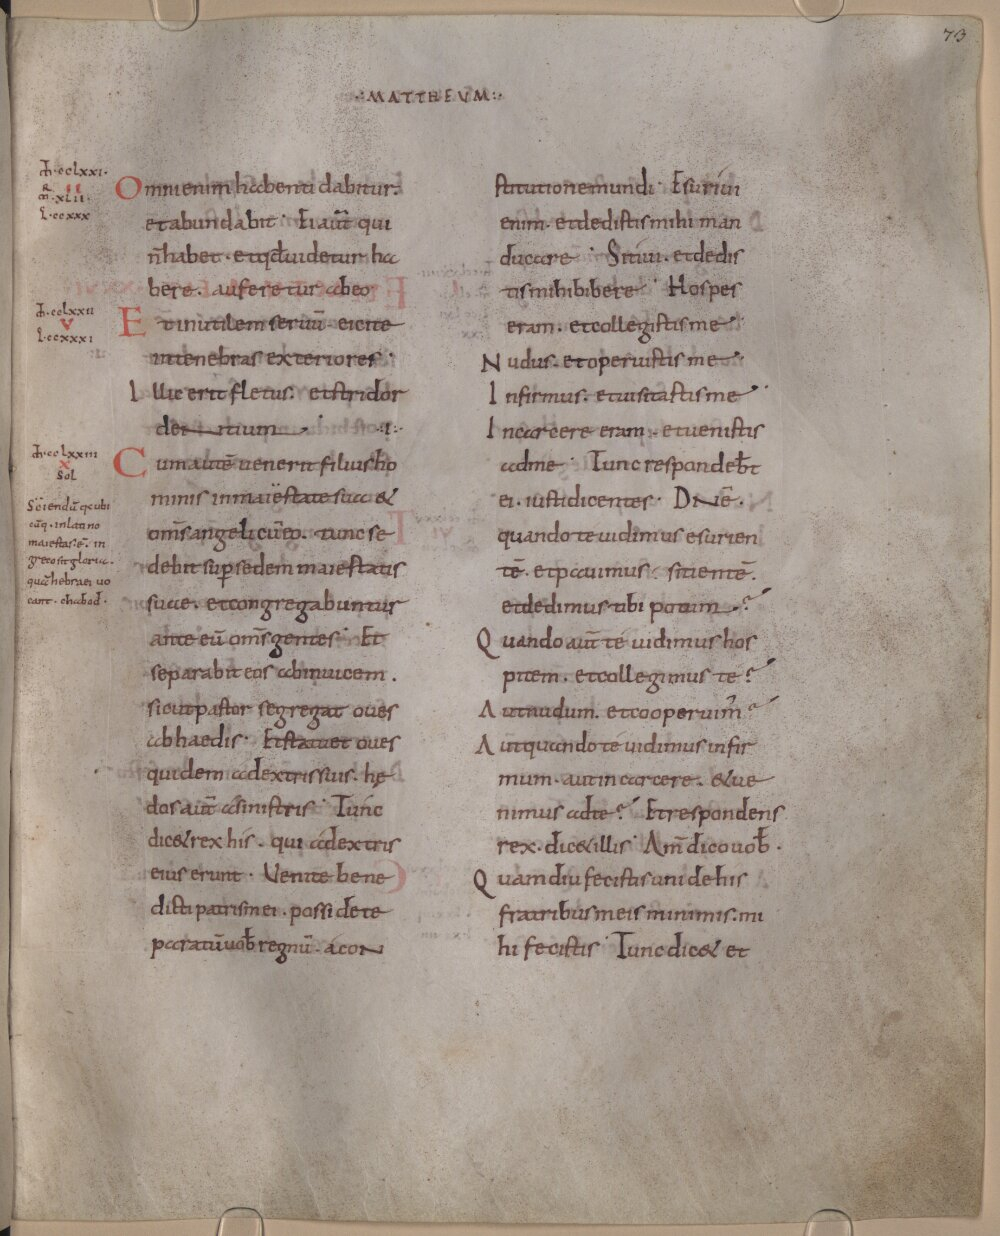 73
·:MATTHEUM:·
M̄·cclxxi·
R II
m·xlii·
L·ccxxx
Omni enim habenti dabitur·
et abundabit· Ei aut̄ qui
n̄ habet· et qd uidetur ha
bere· auferetur ab eo
M̄·cclxxii
V
L·ccxxxi
Et inutilem seruū· eicite
in tenebras exteriores·
Illic erit fletus· et stridor
dentium·
M̄·cclxxiii
X
Sol
Cum autē uenerit filius ho
minis in maiestate sua &
om̄s angeli cū eo· tunc se
debit sup sedem maiestatis
suae· et congregabuntur
ante eū om̄s gentes· Et
separabit eos ab inuicem·
sicut pastor segregat oues
ab haedis· Et statuet oues
quidem a dextris suis· hę
dos aut̄ a sinistris· Tunc
dic& rex his· qui a dextris
eius erunt· Venite bene
dicti patris mei· possidete
paratū uob̄ regnū· a con
Sciendū qc ubi
cūq· in latino
maiestas· ē· in
greco sit gloria·
quā hebraei uo
cant· chabod·
stitutione mundi· Esuriui
enim· et dedistis mihi man
ducare· Sitiui· et dedis
tis mihi bibere· Hospes
eram· et collegistis me·
Nudus· et operuistis me·
Infirmus· et uisitastis me·
In carcere eram· et uenistis
ad me· Tunc respondeb̄t
ei· iusti dicentes· Dn̄e·
quando te uidimus esurien
tē· et pauimus· sitientē·
et dedimus tibi potum·?
Quando aut̄ te uidimus hos
pitem· et collegimus te?
Aut nudum· et cooperuim̄?
Aut quando te uidimus infir
mum· aut in carcere· & ue
nimus ad te? Et respondens
rex· dic& illis· Am̄ dico uob̄·
Quamdiu fecistis uni de his
fratribus meis minimis· mi
hi fecistis· Tunc dic& et